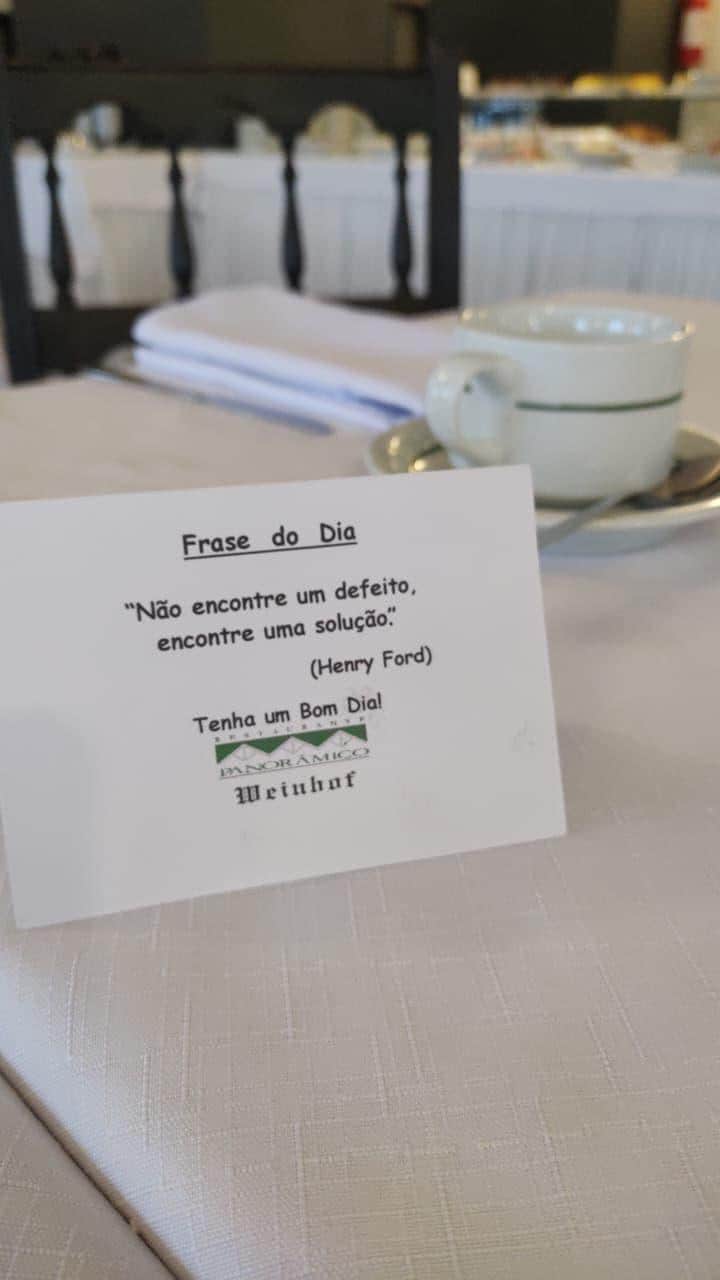 Frase do Dia
“Não encontre um defeito,
encontre uma solução.”
(Henry Ford)
Tenha um Bom Dia!
RESTAURANTE
PANORÂMICO
Weinhof